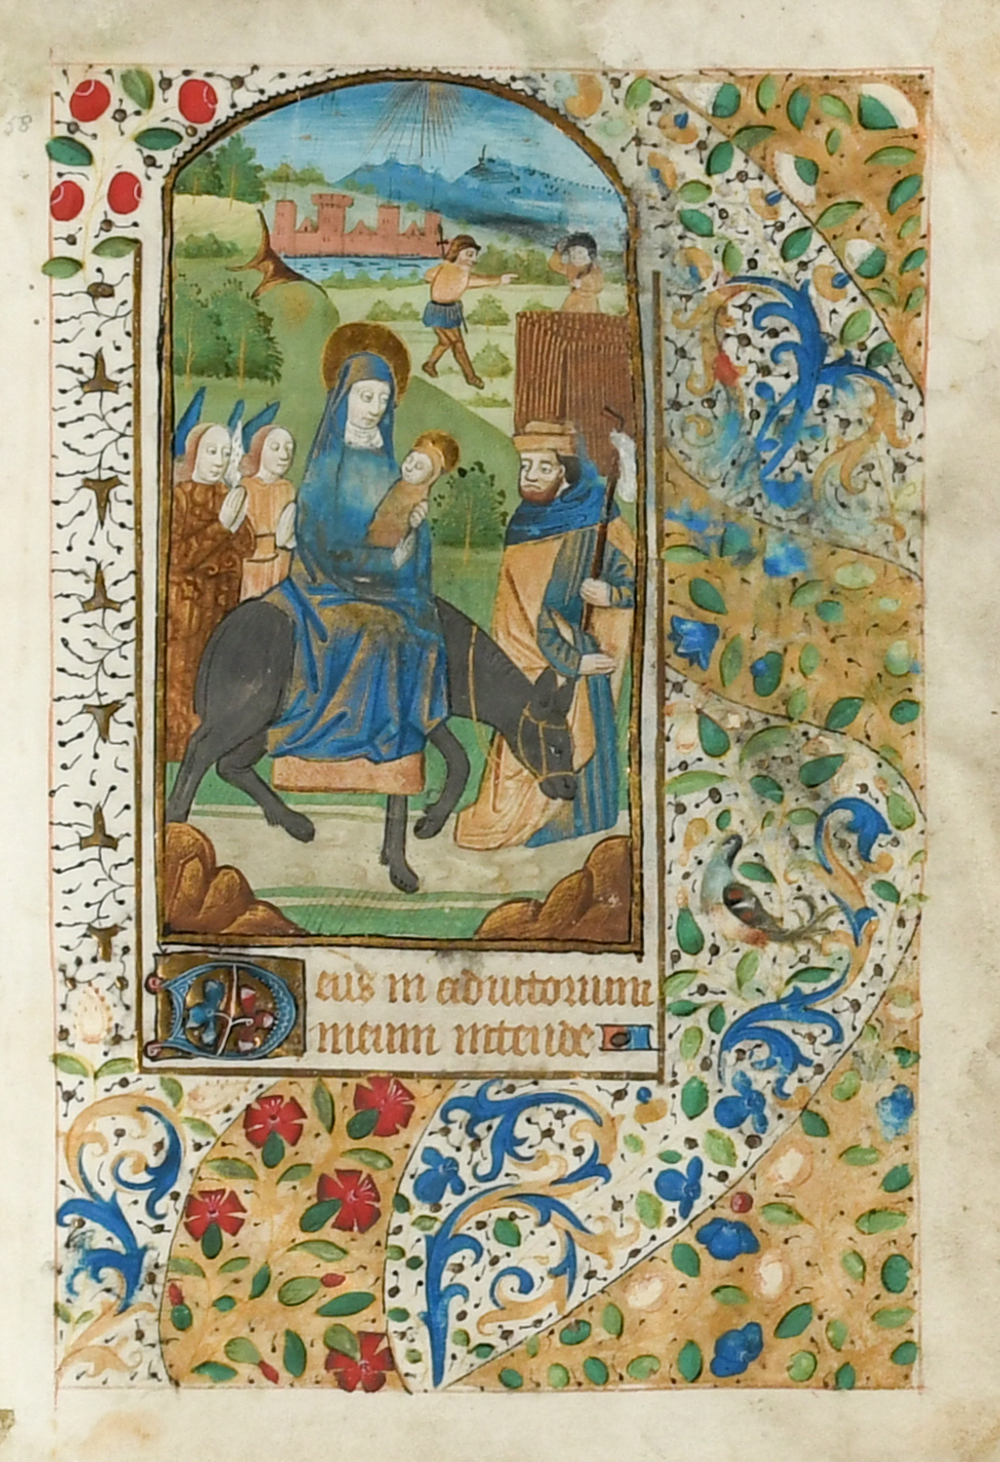 58
Deus in adiutorium
meum intende